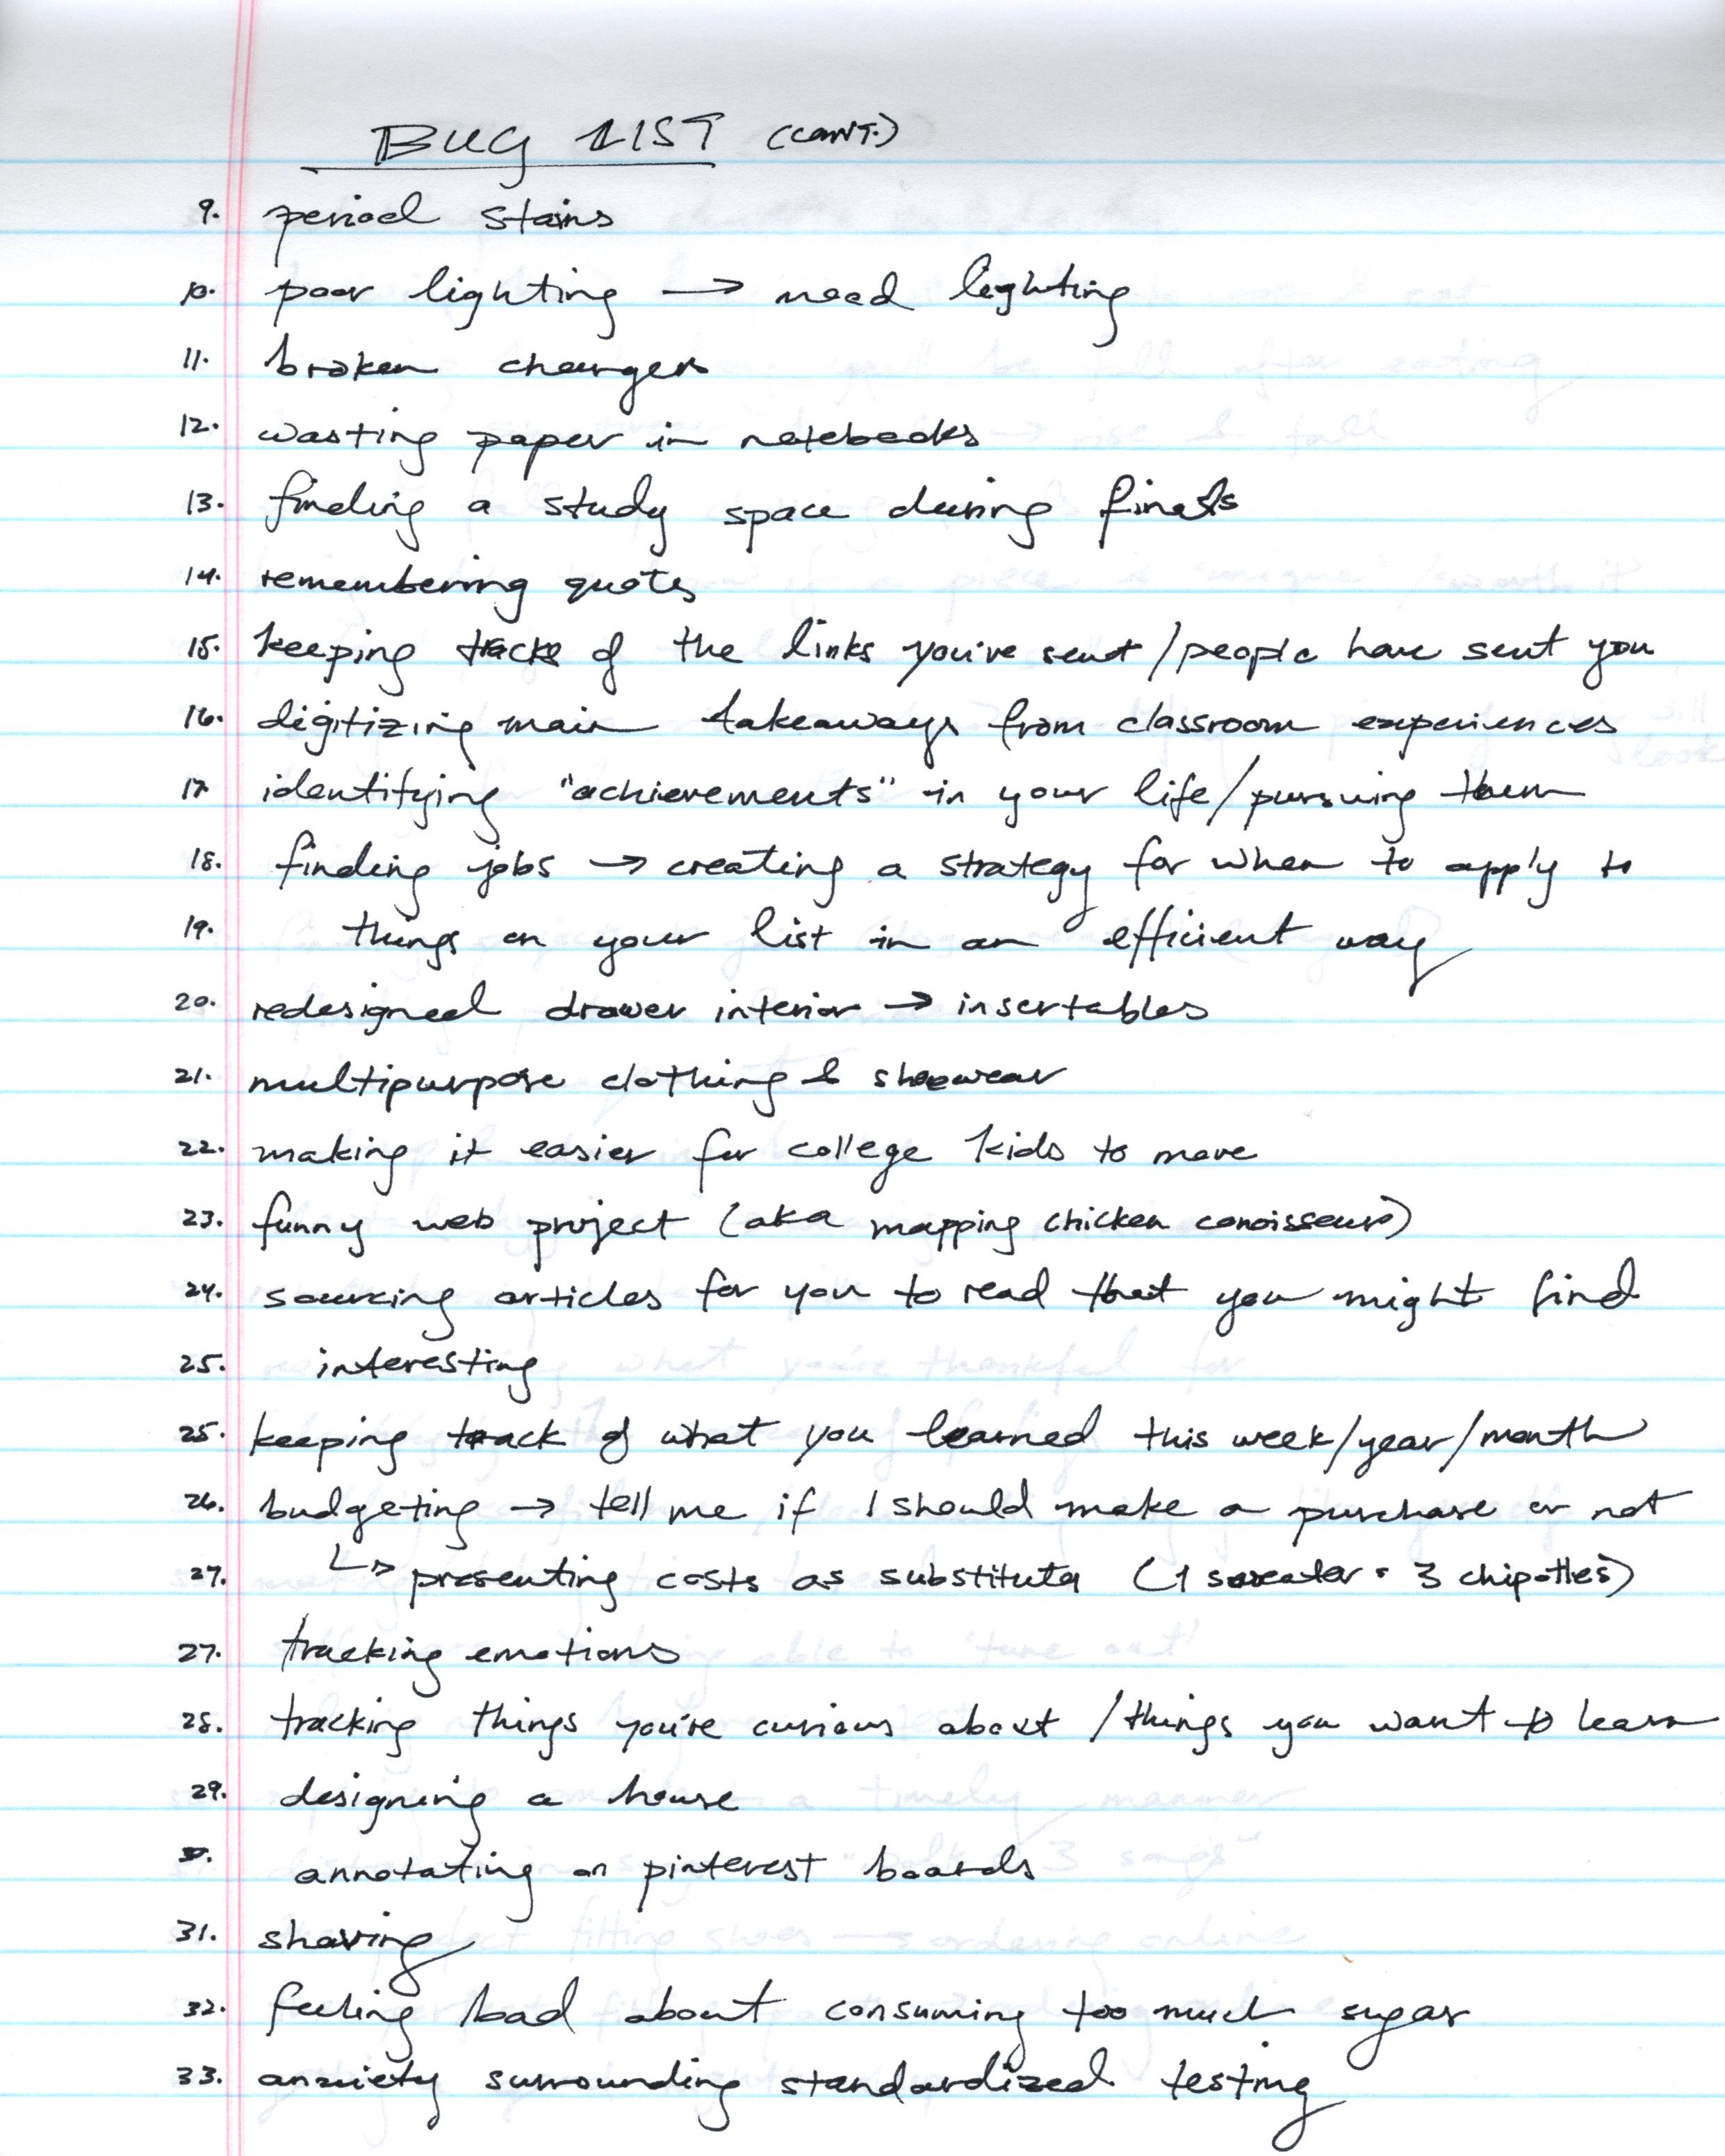 BUG LIST (CONT.)
9. period stains
10. poor lighting → need lighting
11. broken chargers
12. wasting paper in notebooks
13. finding a study space during finals
14. remembering quotes
15. keeping tracks of the links you've sent/people have sent you
16. digitizing main takeaways from classroom experiences
17. identifying "achievements" in your life/pursuing them
18. finding jobs → creating a strategy for when to apply to
19. things on your list in an efficient way
20. redesigned drawer interior → insertables
21. multipurpose clothing & shoewear
22. making it easier for college kids to move
23. funny web project (aka mapping chicken conoisseurs)
24. sourcing articles for you to read that you might find
25. interesting
25. keeping track of what you learned this week/year/month
26. budgeting → tell me if I should make a purchase or not
27. ↳ presenting costs as substitutes (1 sweater = 3 chipotles)
27. tracking emotions
28. tracking things you're curious about /things you want to learn
29. designing a house
30. annotating on pinterest boards
31. shaving
32. feeling bad about consuming too much sugar
33. anxiety surrounding standardized testing